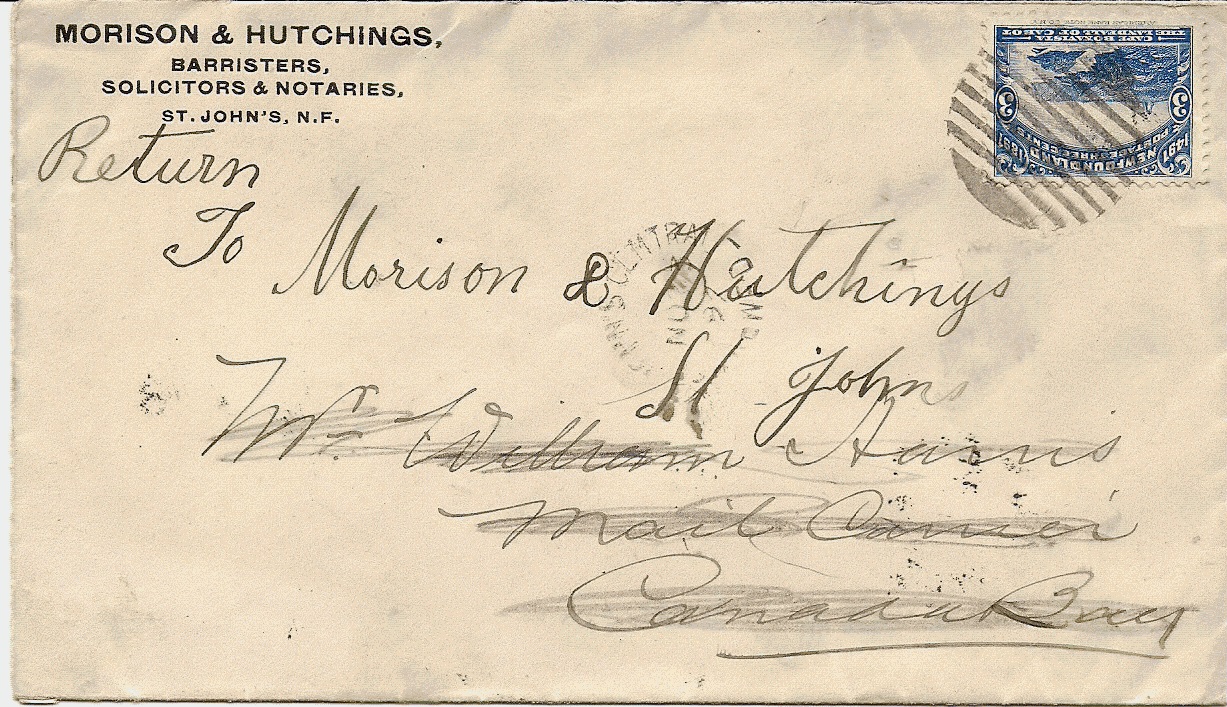 MORISON & HUTCHINGS,
BARRISTERS,
SOLICITORS & NOTARIES,
ST. JOHN'S, N.F.
AMERICAN BANK NOTE CO. N.Y.
THE LANDFALL OF CABOT
CAPE BONAVISTA
3 3
POSTAGE THREE CENTS
1497 NEWFOUNDLAND 1897
Return
To
Morison & Hutchings
St Johns
CENTRAL
NO
Mr William Harris
Mail Carrier
Canada Bay